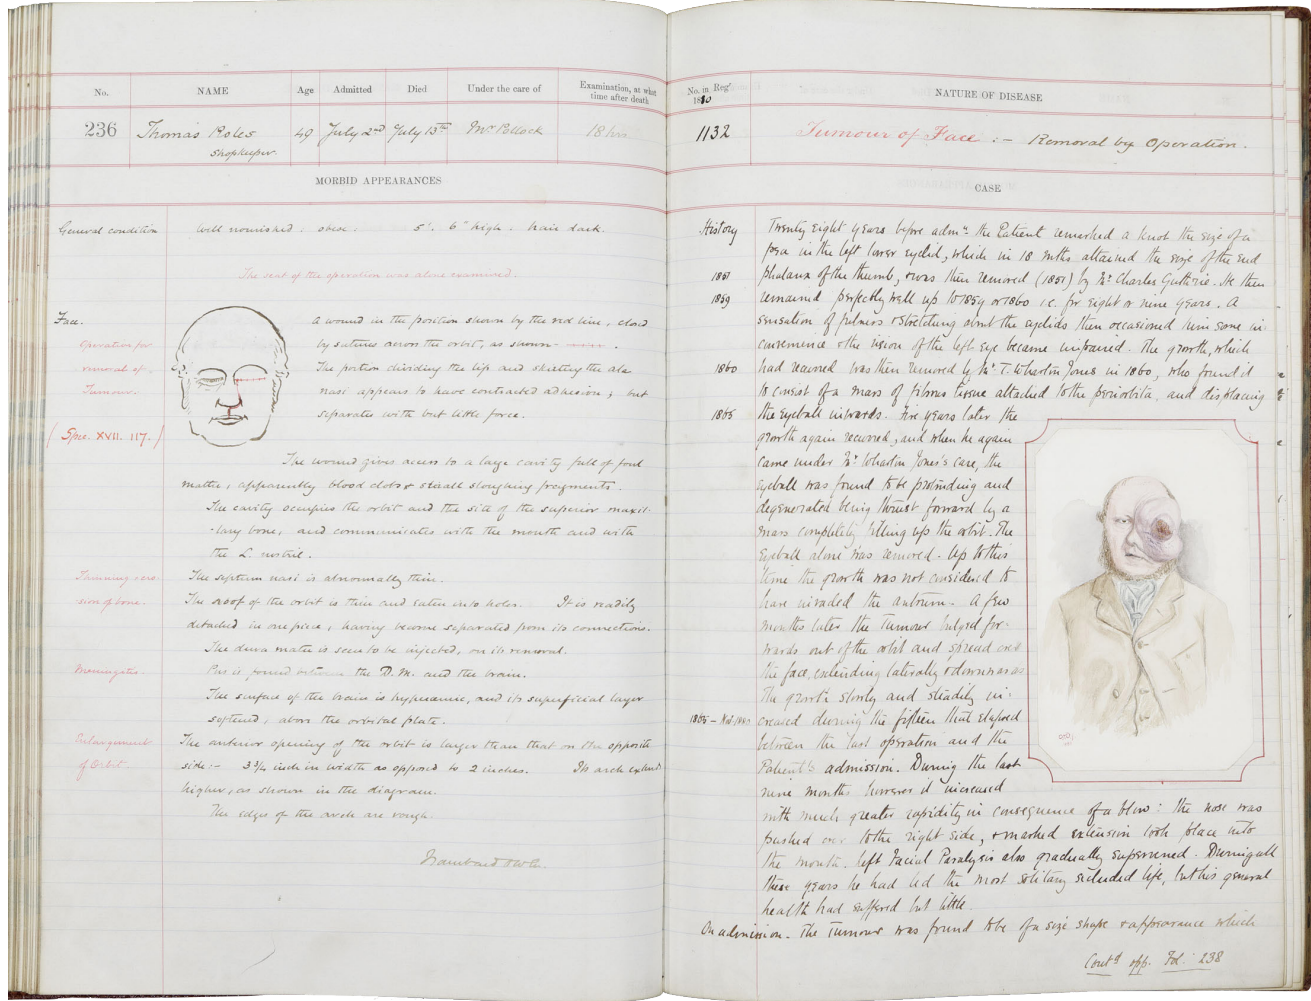 No.
NAME
Age
Admitted
Died
Under the care of
Examination, at what time after death
236
Thomas Roles
Shopkeeper
49
July 2nd
July 13th
Mr Pollock
18 hrs
MORBID APPEARANCES
General condition
Well nourished: obese: 5'. 6" high. hair dark.
The seat of the operation was alone examined.
Face.
Operation for
removal of
Tumour.
( Spec. XVII. 117. )
A wound in the position shown by the red line, closed
by sutures across the orbit, as shown
The portion dividing the lip and skirting the ala
nasi appears to have contracted adhesion; but
separates with but little force.
The wound gives access to a large cavity full of foul
matter, apparently blood clots & small sloughing fragments.
The cavity occupies the orbit and the site of the superior maxil-
-lary bone, and communicates with the mouth and with
the L. nostril.
The septum nasi is abnormally thin.
Thinning & ero-
sion of bone.
The roof of the orbit is thin and eaten into holes. It is readily
detached in one piece, having become separated from its connections.
The dura mater is seen to be injected, on its removal.
Meningitis.
Pus is found between the D.M. and the brain.
The surface of the brain is hyperaemic, and its superficial layer
softened, above the orbital plate.
Enlargement
of Orbit.
The anterior opening of the orbit is larger than that on the opposite
side:- 3 3/4 inch in width as opposed to 2 inches. Its arch extends
higher, as shown in the diagram.
The edges of the arch are rough.
No. in Reg'
1880
NATURE OF DISEASE
1132
Tumour of Face :- Removal by Operation.
CASE
History
Twenty Eight years before admn. the Patient remarked a knot the size of a
pea in the left lower eyelid, which in 18 mths attained the size of the end
1851
phalanx of the thumb, & was then removed (1851) by Mr Charles Guthrie. He then
1859
remained perfectly well up to 1859 or 1860 i.e. for eight or nine years. A
sensation of fulness & stretching about the eyelids then occasioned him some in
convenience & the vision of the left Eye became impaired. The growth, which
1860
had recurred was then removed by Mr. T. Wharton Jones in 1860, who found it
to consist of a mass of fibrous tissue attached to the periorbita, and displacing
1865
the Eyeball inwards. Five years later the
growth again recurred, and when he again
came under Mr Wharton Jones's care, the
Eyeball was found to be protruding and
degenerated being thrust forward by a
mass completely filling up the orbit. The
Eyeball alone was removed. Up to this
time the growth was not considered to
have invaded the antrum. A few
months later the tumour bulged for-
wards out of the orbit and spread over
the face, extending laterally & downwards
The growth slowly and steadily in-
1865 -
creased during the fifteen that elapsed
between the last operation and the
Patient's admission. During the last
nine months however it increased
with much greater rapidity in consequence of a blow: the nose was
pushed over to the right side, & marked extension took place into
the mouth. Left Facial Paralysis also gradually supervened. During all
these years he had led the most solitary secluded life, but his general
health had suffered but little.
On admission. The Tumour was found to be of a size shape & appearance which
Contd opp. Fol: 238